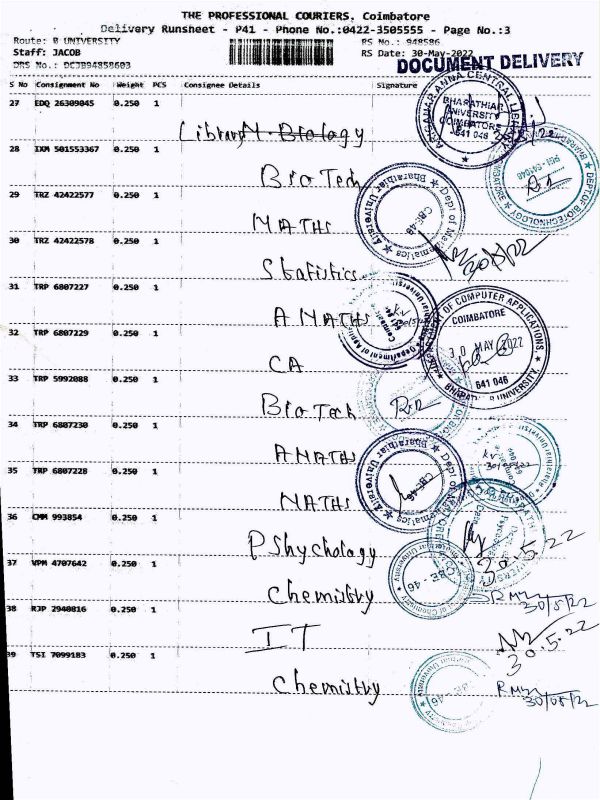 THE PROFESSIONAL COURIERS, Coimbatore
Delivery Runsheet - P41 - Phone No.:0422-3505555 - Page No.:3
Route: B UNIVERSITY RS No.: 948586
Staff: JACOB RS Date: 30-May-2022
DRS No.: DCJB94858603 DOCUMENT DELIVERY
S No Consignment No Weight PCS Consignee Details Signature
27 EDQ 26309045 0.250 1
Library M. Biology
28 IXM 501553367 0.250 1
BioTech
29 TRZ 42422577 0.250 1
MATHS
30 TRZ 42422578 0.250 1
Statistics 30/5/22
31 TRP 6807227 0.250 1
A MATHS
32 TRP 6807229 0.250 1
CA
33 TRP 5992088 0.250 1
BioTech
34 TRP 6807230 0.250 1
AMATHS
35 TRP 6807228 0.250 1
MATHS
36 CMM 993854 0.250 1
PShychology 30.5.22
37 VPM 4707642 0.250 1
Chemistry 30/5/22
38 RJP 2940816 0.250 1
IT 30.5.22
39 TSI 7099183 0.250 1
Chemistry 30/05/22
ARIGNAR ANNA CENTRAL LIBRARY
BHARATHIAR
UNIVERSITY
COIMBATORE
641 046
Dept of Mathematics
Bharathiar University
CBE-46
DEPARTMENT OF COMPUTER APPLICATIONS
COIMBATORE
30 MAY 2022
641 046
BHARATHIAR UNIVERSITY